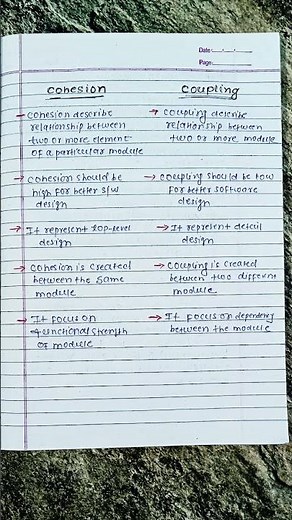 Date:
Page:
Cohesion
Coupling
→ Cohesion describe
relationship between
two or more element
of a particular module
→ Coupling describe
relationship between
two or more module
→ Cohesion should be
high for better s/w
design
→ Coupling should be low
for better software
design
→ It represent top-level
design
→ It represent detail
design
→ Cohesion is created
between the same
module
→ Coupling is created
between two different
module.
→ It focus on
functional strength
of module
→ It focus on dependency
between the module